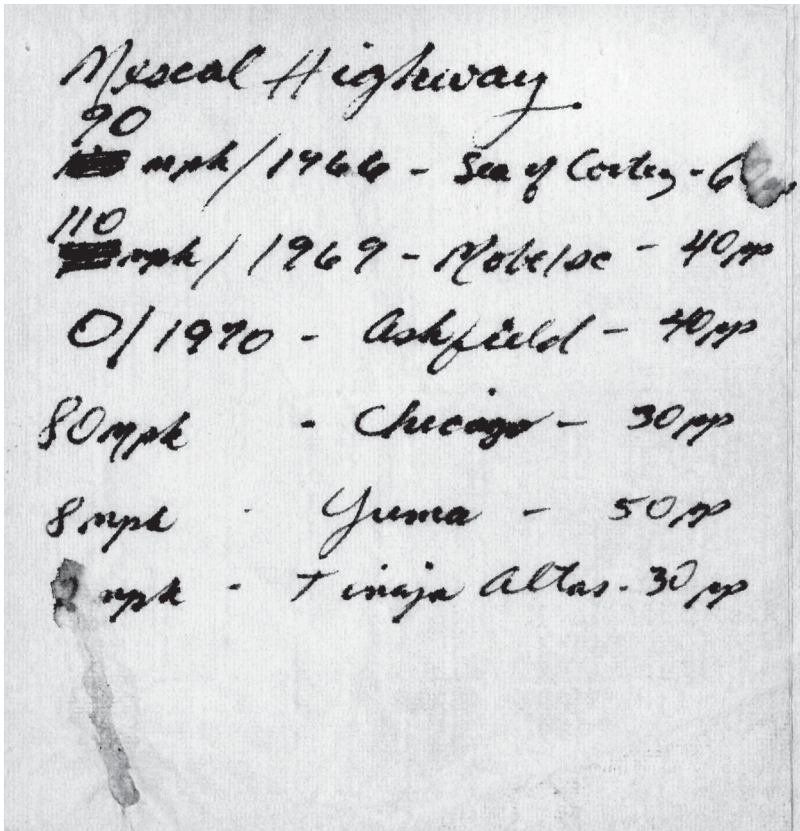 Mescal Highway
90
mph/1966 - Sea of Cortez - 6
110
mph/ 1969 - - 40pp
0/1970 - Ashfield - 40pp
80mph - Chicago - 30pp
8mph - Yuma - 50pp
mph - Tinaja Altas - 30pp